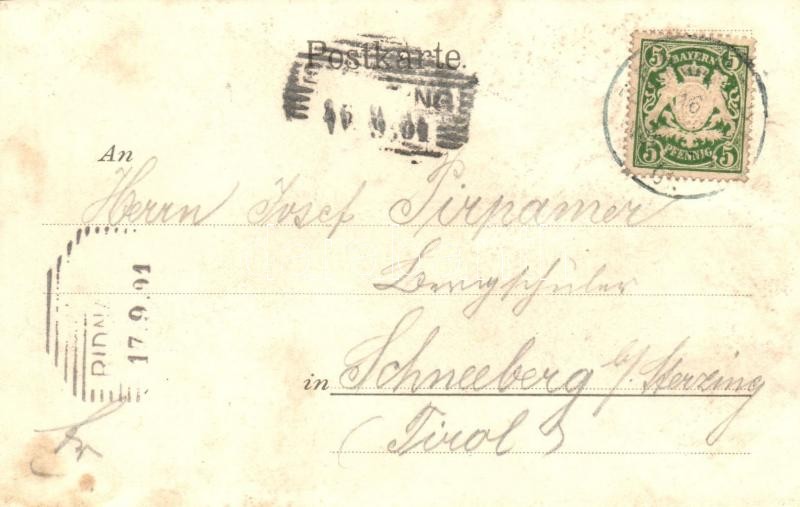 Postkarte.
5 BAYERN 5
5 PFENNIG 5
16
An
Herrn Josef Pirpamer
Bergschüler
in Schneeberg b/ Sterzing
(Tirol)
RIDNA
17.9.01